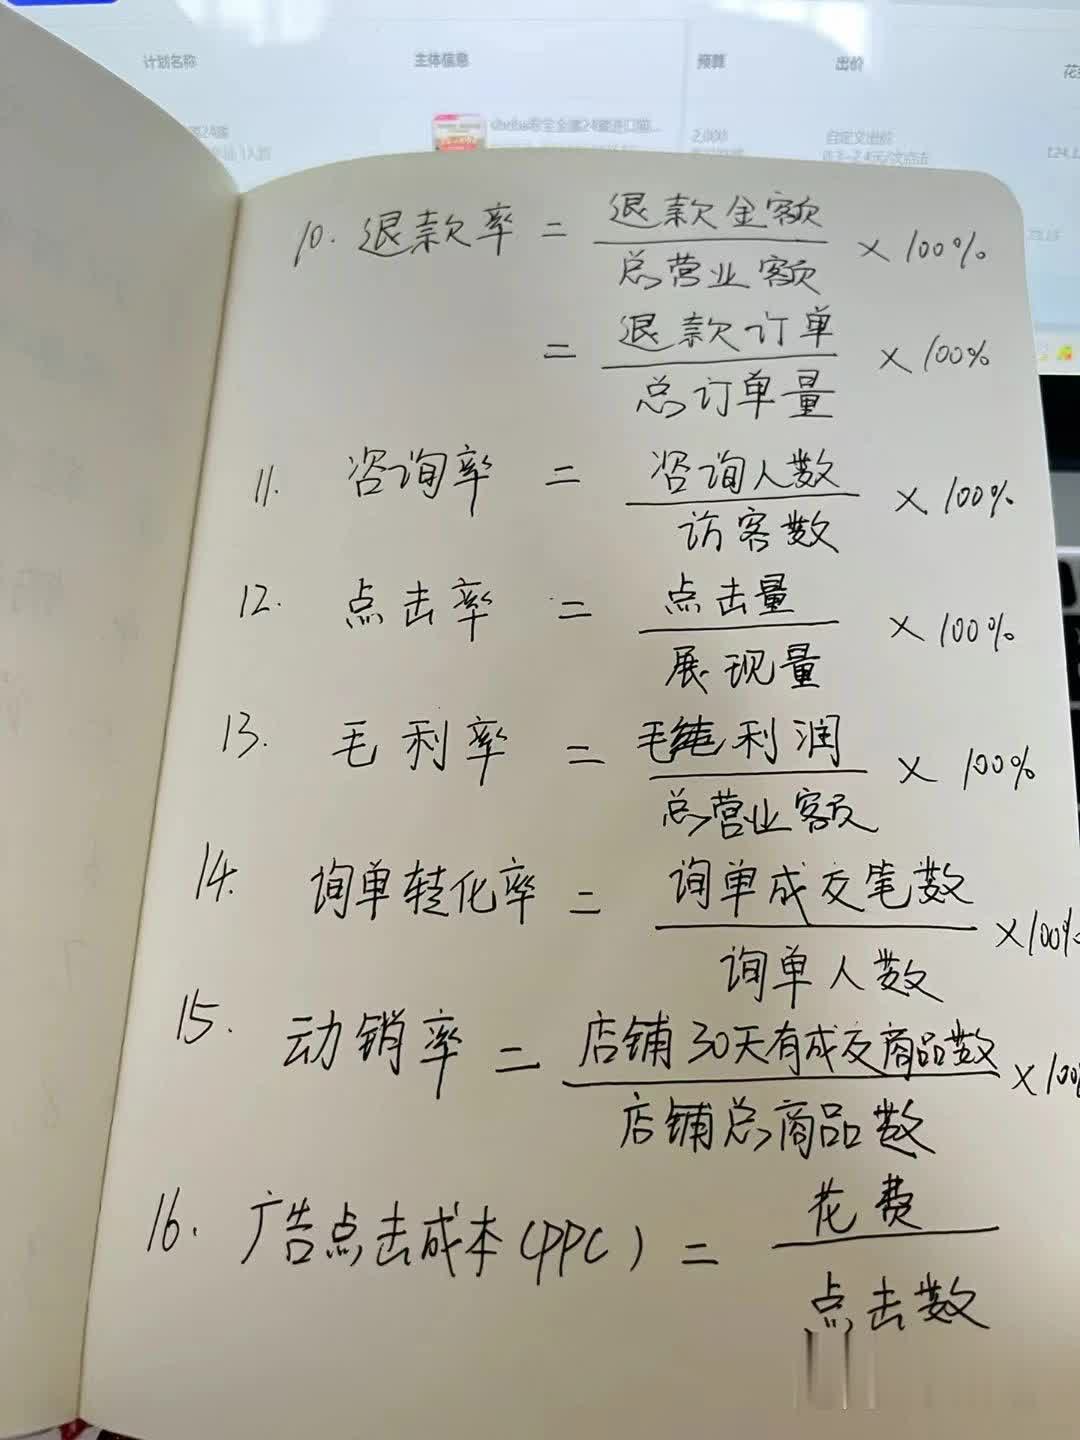 计划名称 主体信息 预算 出价
2,000 自定义出价
10. 退款率 = 退款金额 / 总营业额 × 100%
= 退款订单 / 总订单量 × 100%
11. 咨询率 = 咨询人数 / 访客数 × 100%
12. 点击率 = 点击量 / 展现量 × 100%
13. 毛利率 = 毛利润 / 总营业额 × 100%
14. 询单转化率 = 询单成交笔数 / 询单人数 × 100%
15. 动销率 = 店铺30天有成交商品数 / 店铺总商品数 × 100%
16. 广告点击成本(PPC) = 花费 / 点击数